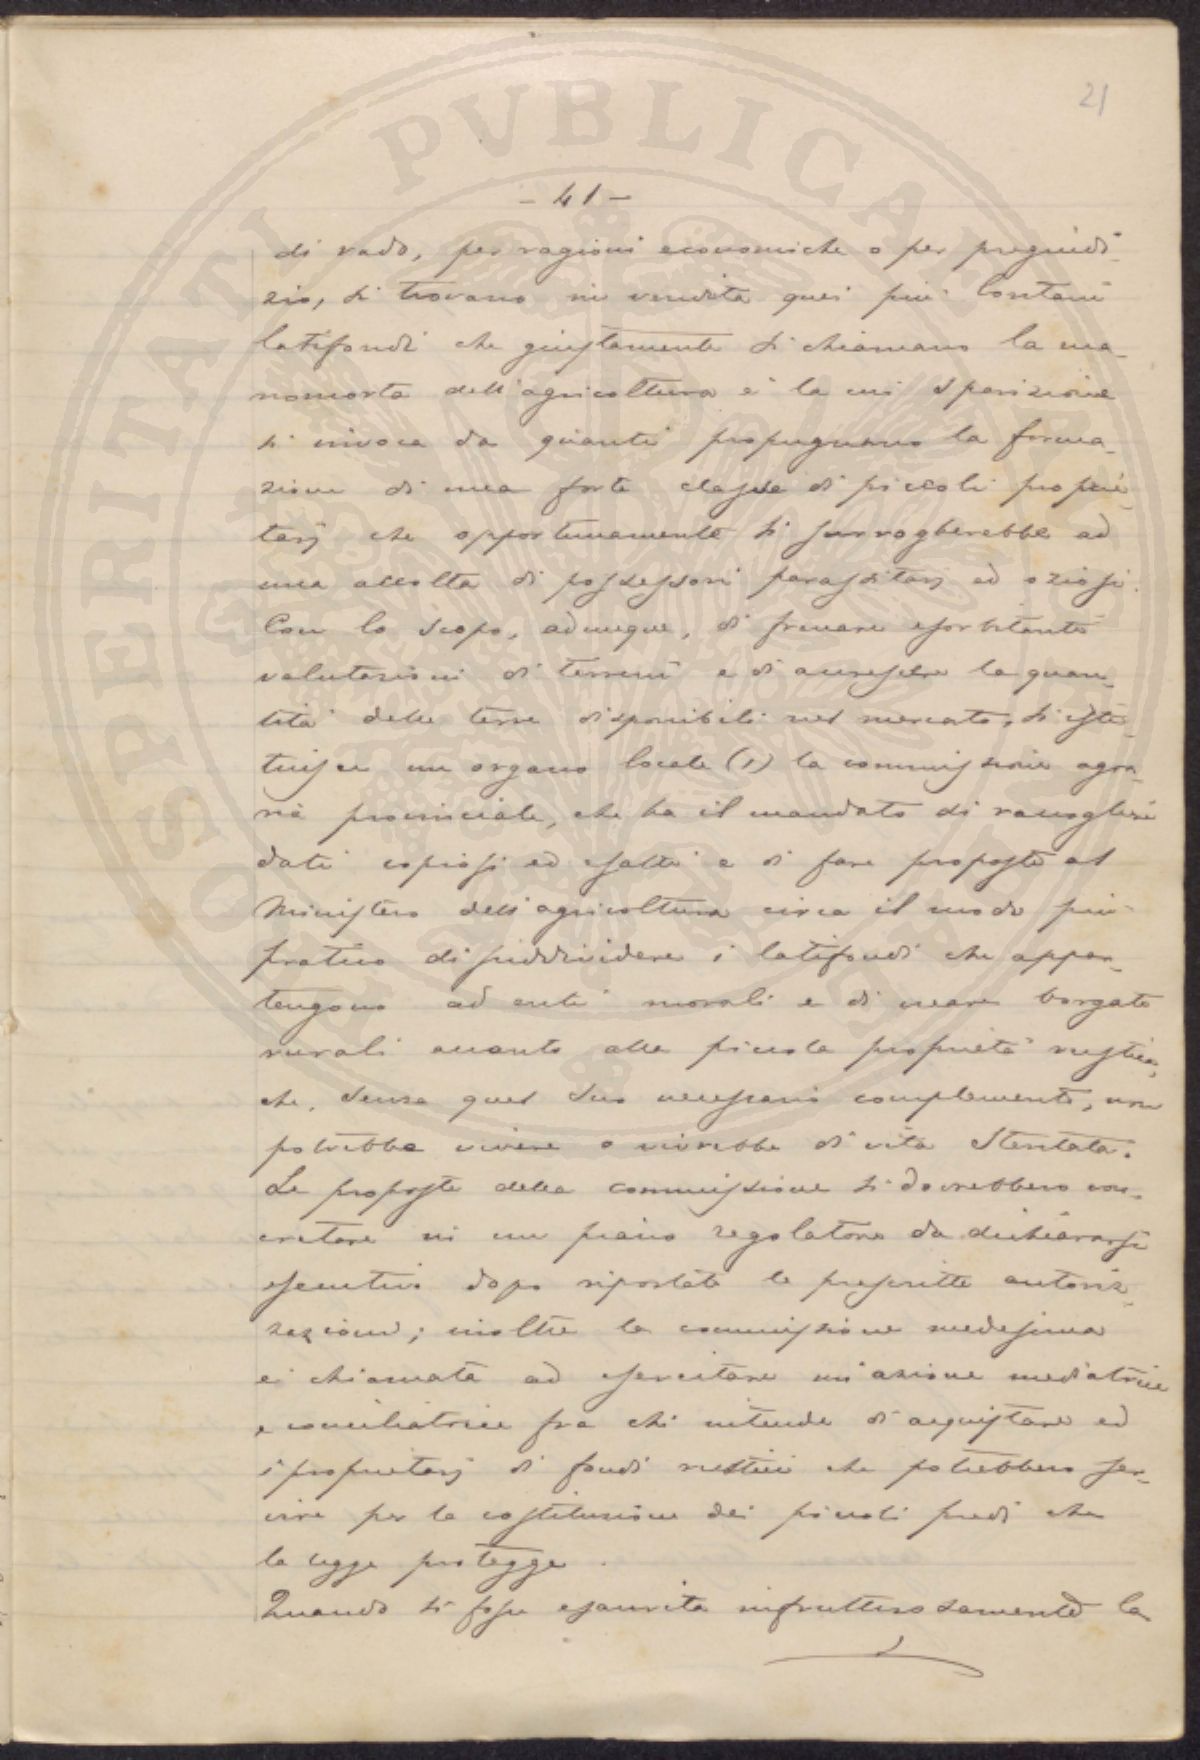 21
- 41 -
di rado, per ragioni economiche o per pregiudi-
zio, si trovano in vendita quei più lontani
latifondi che giustamente si chiamano la ma-
nomorta dell'agricoltura e la cui sparizione
si invoca da quanti propugnano la forma-
zione di una forte classe di piccoli proprie-
tarj che opportunamente si surrogherebbe ad
una accolta di possessori parassitarj ed oziosi.
Con lo scopo, adunque, di frenare esorbitanti
valutazioni di terreni e di accrescere la quan-
tità delle terre disponibili nel mercato, si isti-
tuisce un organo locale (1) la commissione agra-
ria provinciale, che ha il mandato di raccogliere
dati copiosi ed esatti e di fare proposte al
Ministero dell'agricoltura circa il modo più
pratico di suddividere i latifondi che appar-
tengono ad enti morali e di creare borgate
rurali accanto alla piccola proprietà rustica,
che, senza quel suo necessario complemento, non
potrebbe vivere o vivrebbe di vita stentata.
Le proposte della commissione si dovrebbero con-
cretare in un piano regolatore da dichiararsi
esecutivo dopo riportate le prescritte autoriz-
zazioni; inoltre la commissione medesima
è chiamata ad esercitare un'azione mediatrice
e conciliatrice fra chi intende di acquistare ed
i proprietarj di fondi rustici che potrebbero ser-
vire per la costituzione dei piccoli predi che
la legge protegge.
Quando si fosse esaurita infruttuosamente la
PROSPERITATI PVBLICAE